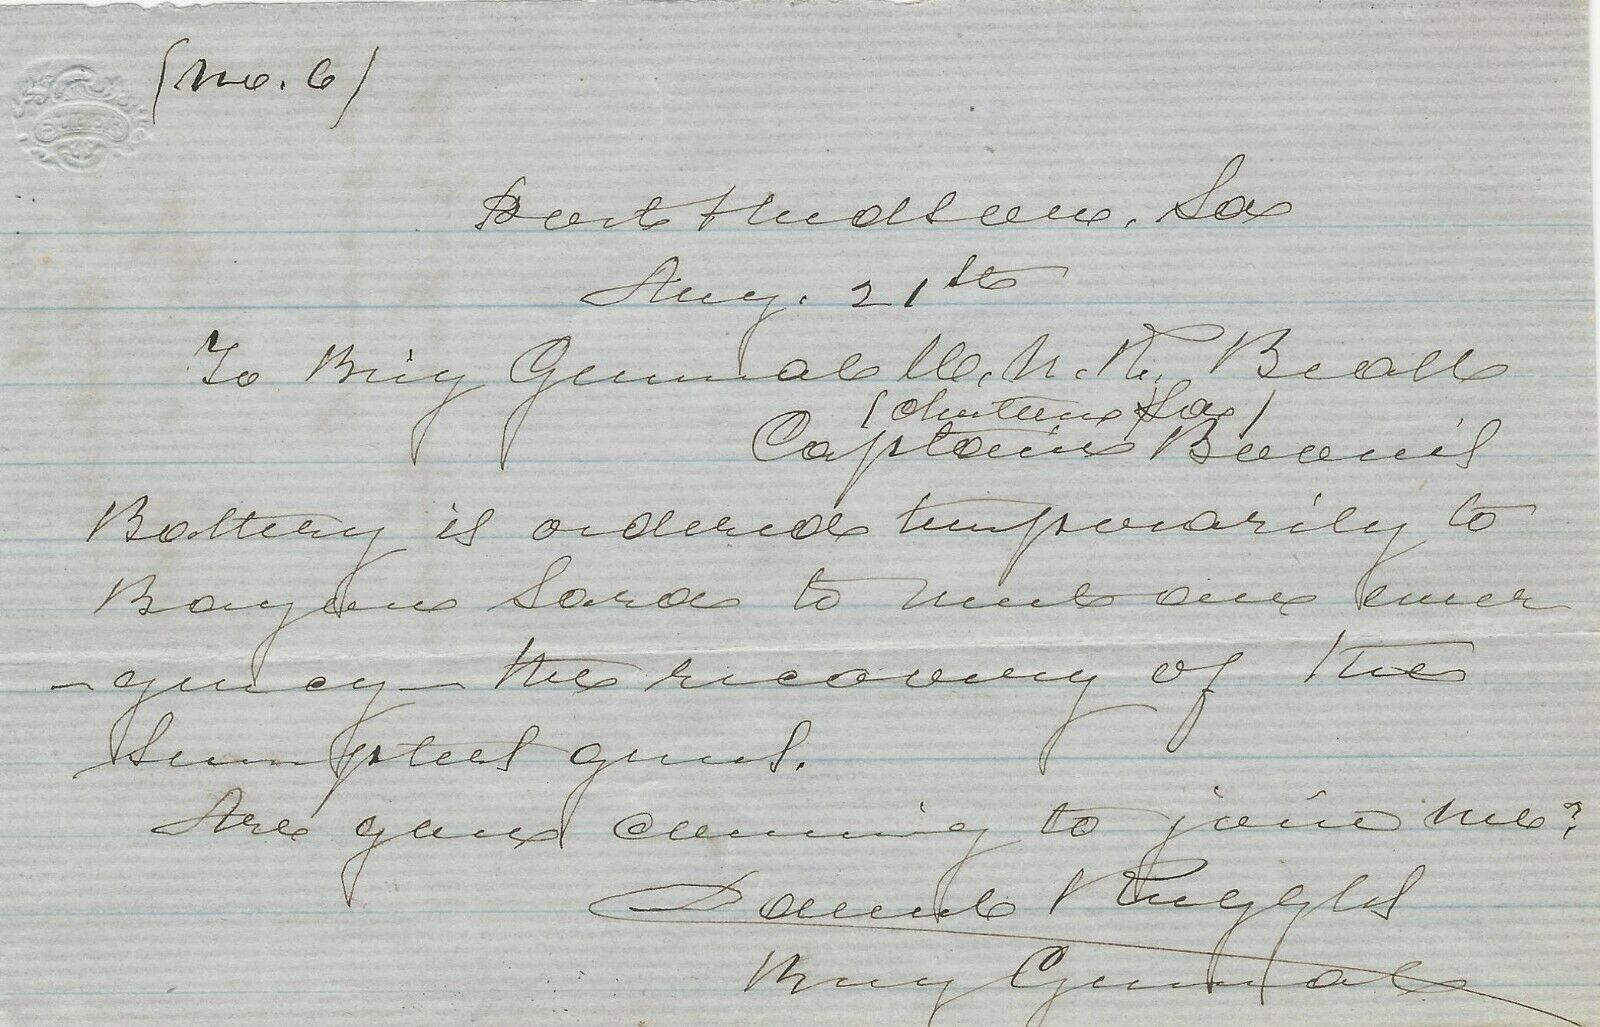 (No. 6)
Port Hudson, La
Aug. 21st
To Brig General W. N. R. Beall
(Clinton La)
Captain Boone's
Battery is ordered temporarily to
Bayou Sara to meet an emer
-gency - the recovery of the
Sumpter's guns.
Are you coming to join me?
Daniel Ruggles
Brig General